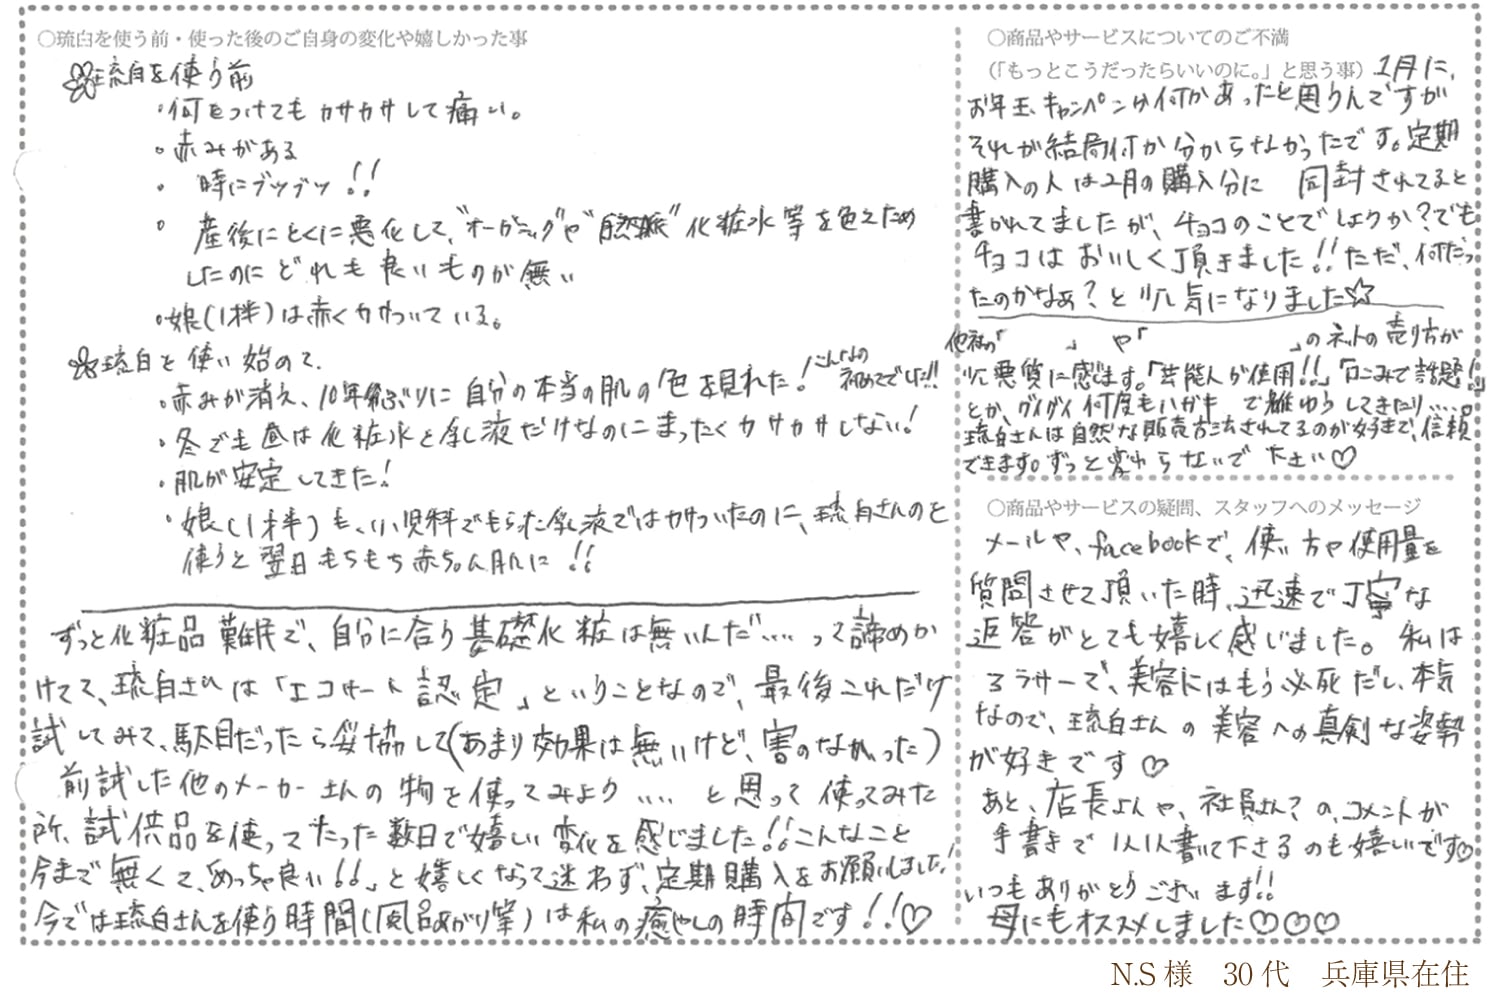 ○琉白を使う前・使った後のご自身の変化や嬉しかった事
琉白を使う前
・何をつけてもカサカサして痛い。
・赤みがある
・時にブツブツ!!
・産後にとくに悪化して、"オーガニック"や"自然派"化粧水等を色えため
したのにどれも良いものが無い
・娘(1才半)は赤くカサついている。
琉白を使い始めて、
・赤みが消え、10年ぶりに自分の本当の肌の色を見れた!こんなの初めてでした!!
・冬でも昼は化粧水と乳液だけなのにまったくカサカサしない!
・肌が安定してきた!
・娘(1才半)も、小児科でもらった乳液ではカサついたのに、琉白さんのを
使うと翌日もちもち赤ちゃん肌に!!
ずっと化粧品難民で、自分に合う基礎化粧は無いんだ…って諦めか
けてて、琉白さんは「エコサート認定」ということなので、最後これだけ
試してみて、駄目だったら妥協して(あまり効果は無いけど、害のなかった)
前試した他のメーカーさんの物を使ってみよう…と思って使ってみた
所、試供品を使ってたった数日で嬉しい変化を感じました!!こんなこと
今まで無くて、めっちゃ良い!!」と嬉しくなって迷わず、定期購入をお願いしました!
今では琉白さんを使う時間(風呂あがり等)は私の癒やしの時間です!!♡
○商品やサービスについてのご不満
(「もっとこうだったらいいのに。」と思う事) 1月に、
お年玉キャンペーンか何かあったと思うんですが
それが結局何か分からなかったです。定期
購入の人は2月の購入分に 同封されてると
書かれてましたが、チョコのことでしょうか?でも
チョコはおいしく頂きました!!ただ、何だっ
たのかなぁ?と少し気になりました☆
他社の「 」や「 」のネットの売り方が
少し悪質に感じます。「芸能人が使用!!」「口こみで話題!」
とか、グイグイ何度もハガキ で勧ゆうしてきたり…。
琉白さんは自然な販売方法されてるのが好きで、信頼
できます。ずっと変わらないで下さい♡
○商品やサービスの疑問、スタッフへのメッセージ
メールや、facebookで、使い方や使用量を
質問させて頂いた時、迅速で丁寧な
返答がとても嬉しく感じました。私は
アラサーで、美容にはもう必死だし、本気
なので、琉白さんの美容への真剣な姿勢
が好きです♡
あと、店長さんや、社員さん?の、コメントが
手書きで1人1人書いて下さるのも嬉しいです♡
いつもありがとうございます!!
母にもオススメしました♡♡♡
N.S様 30代 兵庫県在住